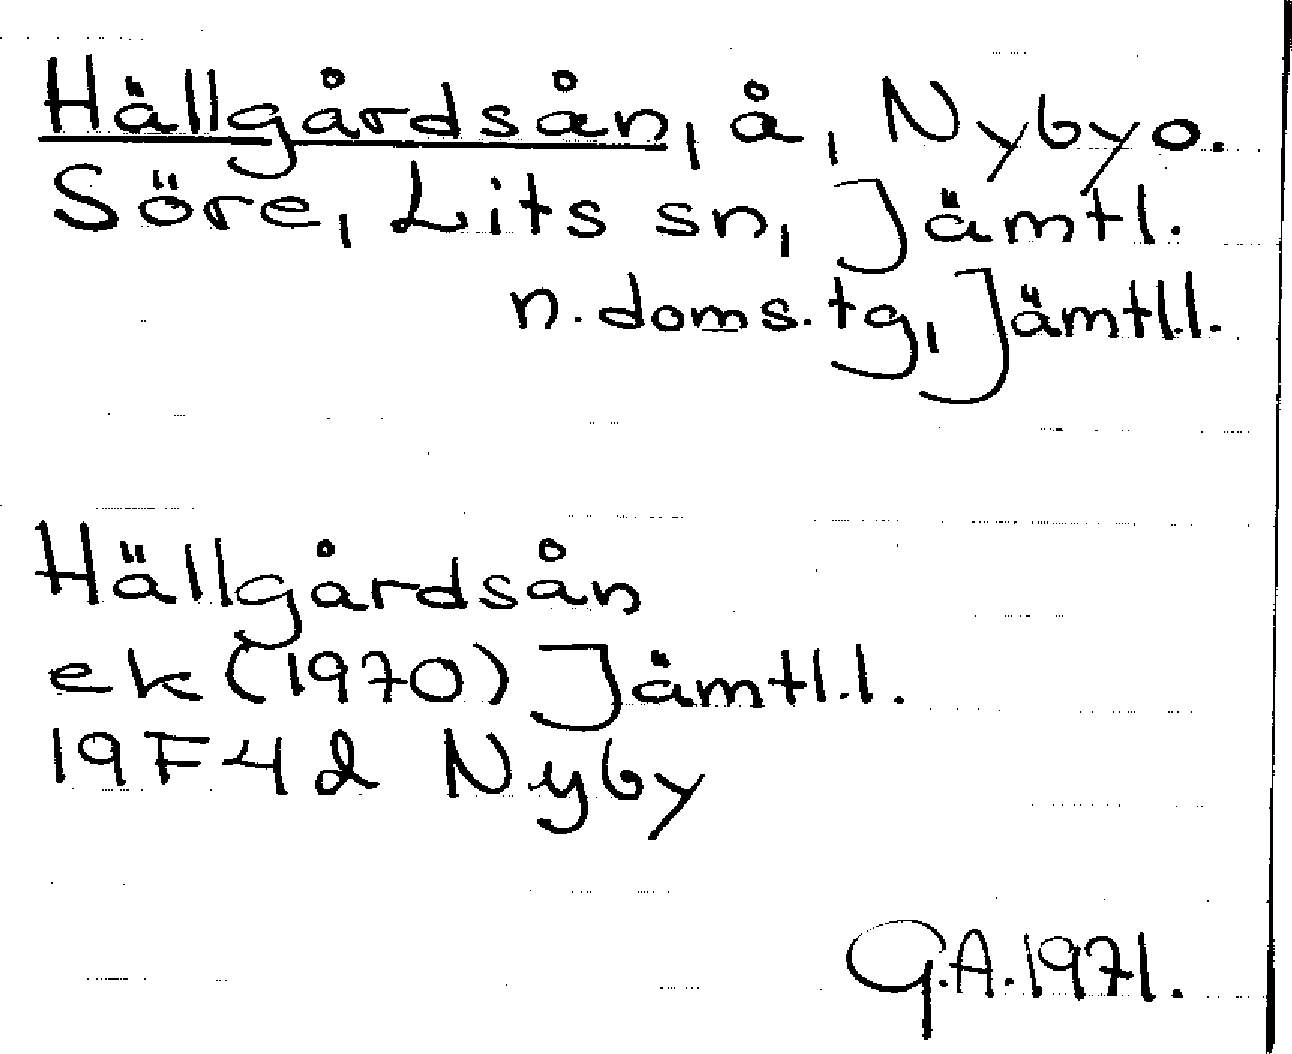 Hällgårdsån, å, Nyby o.
Söre, Lits sn, Jämtl.
n. doms. tg, Jämtl.l.
Hällgårdsån
ek (1970) Jämtl.l.
19F4d Nyby
G.A. 1971.